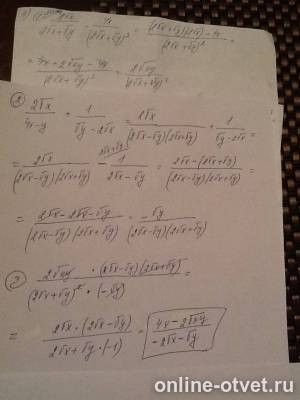 1) 2√x / (2√x+√y) - 4x / (2√x+√y)² = ((2√x+√y)(2√x) - 4x) / (2√x+√y)² =
= (4x + 2√xy - 4x) / (2√x+√y)² = 2√xy / (2√x+√y)²
2) 2√x / (4x-y) + 1 / (√y - 2√x) = 2√x / ((2√x-√y)(2√x+√y)) + 1 / (√y-2√x) =
= 2√x / ((2√x-√y)(2√x+√y)) - 1 / (2√x-√y) = (2√x-(2√x+√y)) / ((2√x-√y)(2√x+√y)) =
= (2√x-2√x-√y) / ((2√x-√y)(2√x+√y)) = -√y / ((2√x-√y)(2√x+√y))
3) 2√xy · (2√x-√y)(2√x+√y) / ((2√x+√y)² · (-√y)) =
= 2√x · (2√x-√y) / (2√x+√y · (-1)) = (4x-2√xy) / (-2√x-√y)
online-otvet.ru